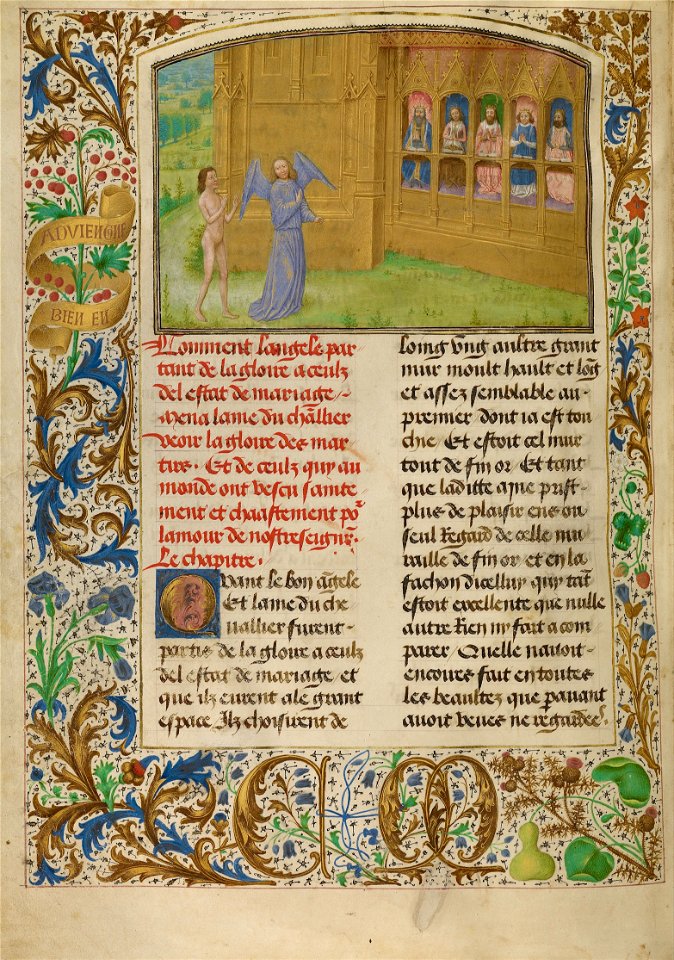 ADVIENGNE
BIEN EN
Comment langele par
tant de la gloire a ceulz
del estat de mariage
mena lame du chlier
veoir la gloire des mar
tirs. Et de ceulz quy au
monde ont vescu sainte
ment et chaastement po
lamour de nostreseignr.
Le chapitre.
Quant le bon angele
Et lame du che
uallier furent
partis de la gloire a ceulz
del estat de mariage et
que ilz eurent ale grant
espace Ilz choisirent de
loing vng aultre grant
mur moult hault et long
et assez semblable au
premier dont ia est tou
chie Et estoit cel mur
tout de fin or Et tant
que laditte ame prist
plus de plaisir ens ou
seul Regard de celle mu
raille de fin or et en la
fachon dicelluy quy tant
estoit excellente que nulle
autre Rien ny fait a com
parer Quelle nauoit
encoures fait en toutes
les beaultez que pauant
auoit veues ne regardees.
C M